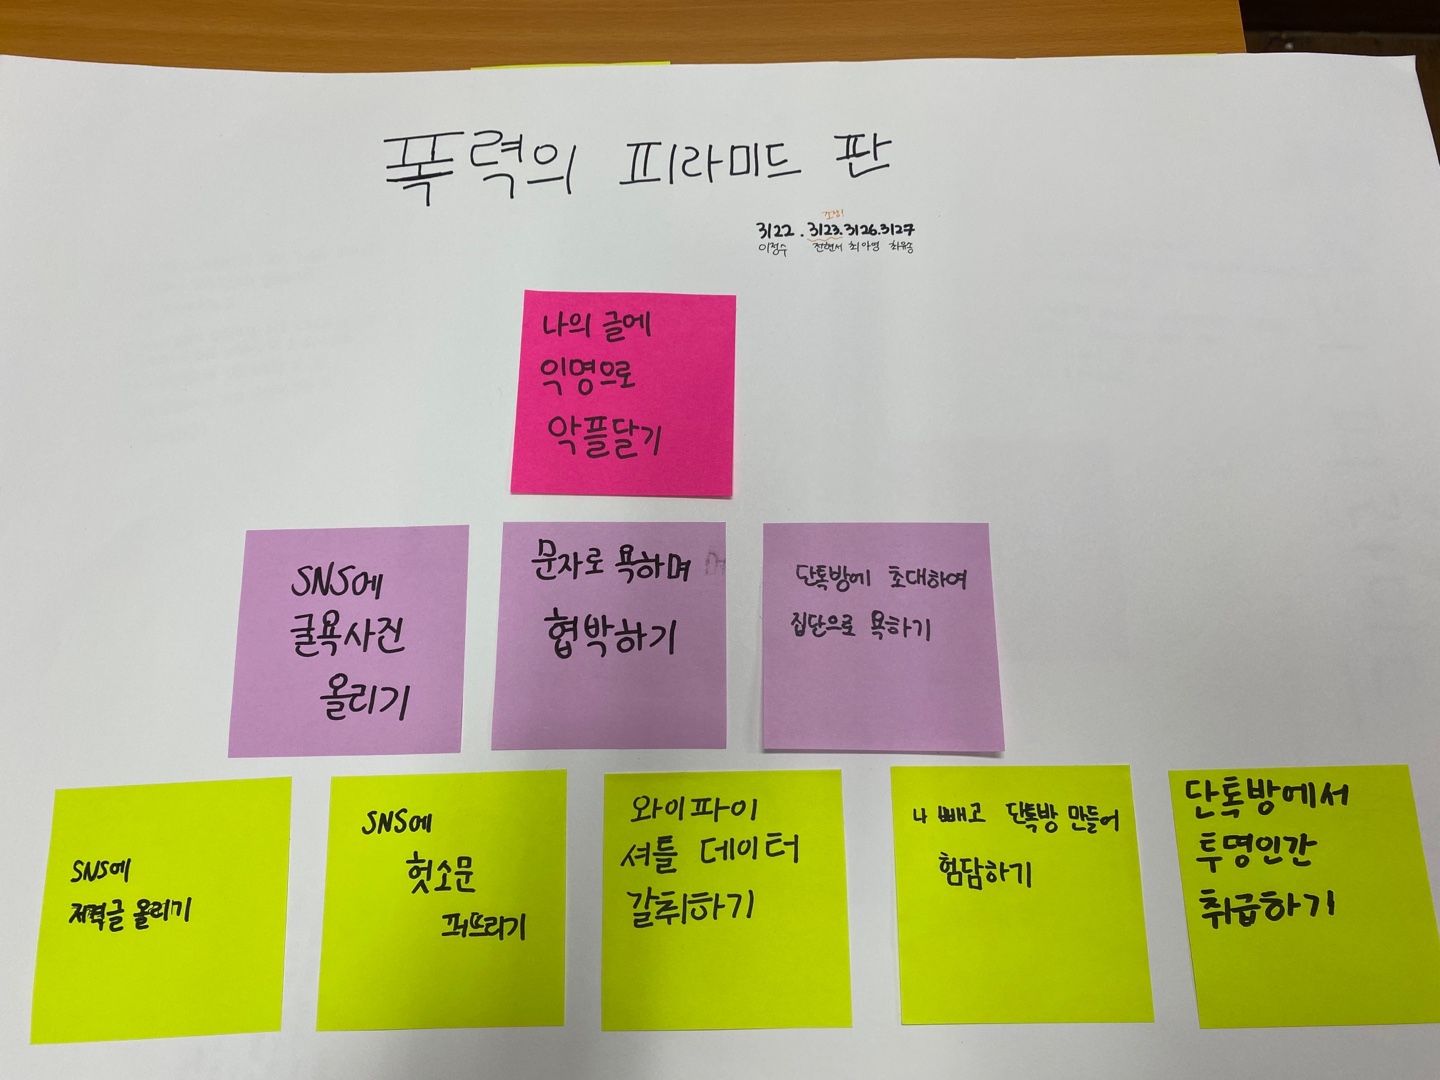 폭력의 피라미드 판
조장!
3122. 3123. 3126. 3127
이정수 전현서 최아영
나의 글에
익명으로
악플달기
SNS에
굴욕사진
올리기
문자로 욕하며
협박하기
단톡방에 초대하여
집단으로 욕하기
SNS에
저격글 올리기
SNS에
헛소문
퍼뜨리기
와이파이
셔틀 데이터
갈취하기
나 빼고 단톡방 만들어
험담하기
단톡방에서
투명인간
취급하기